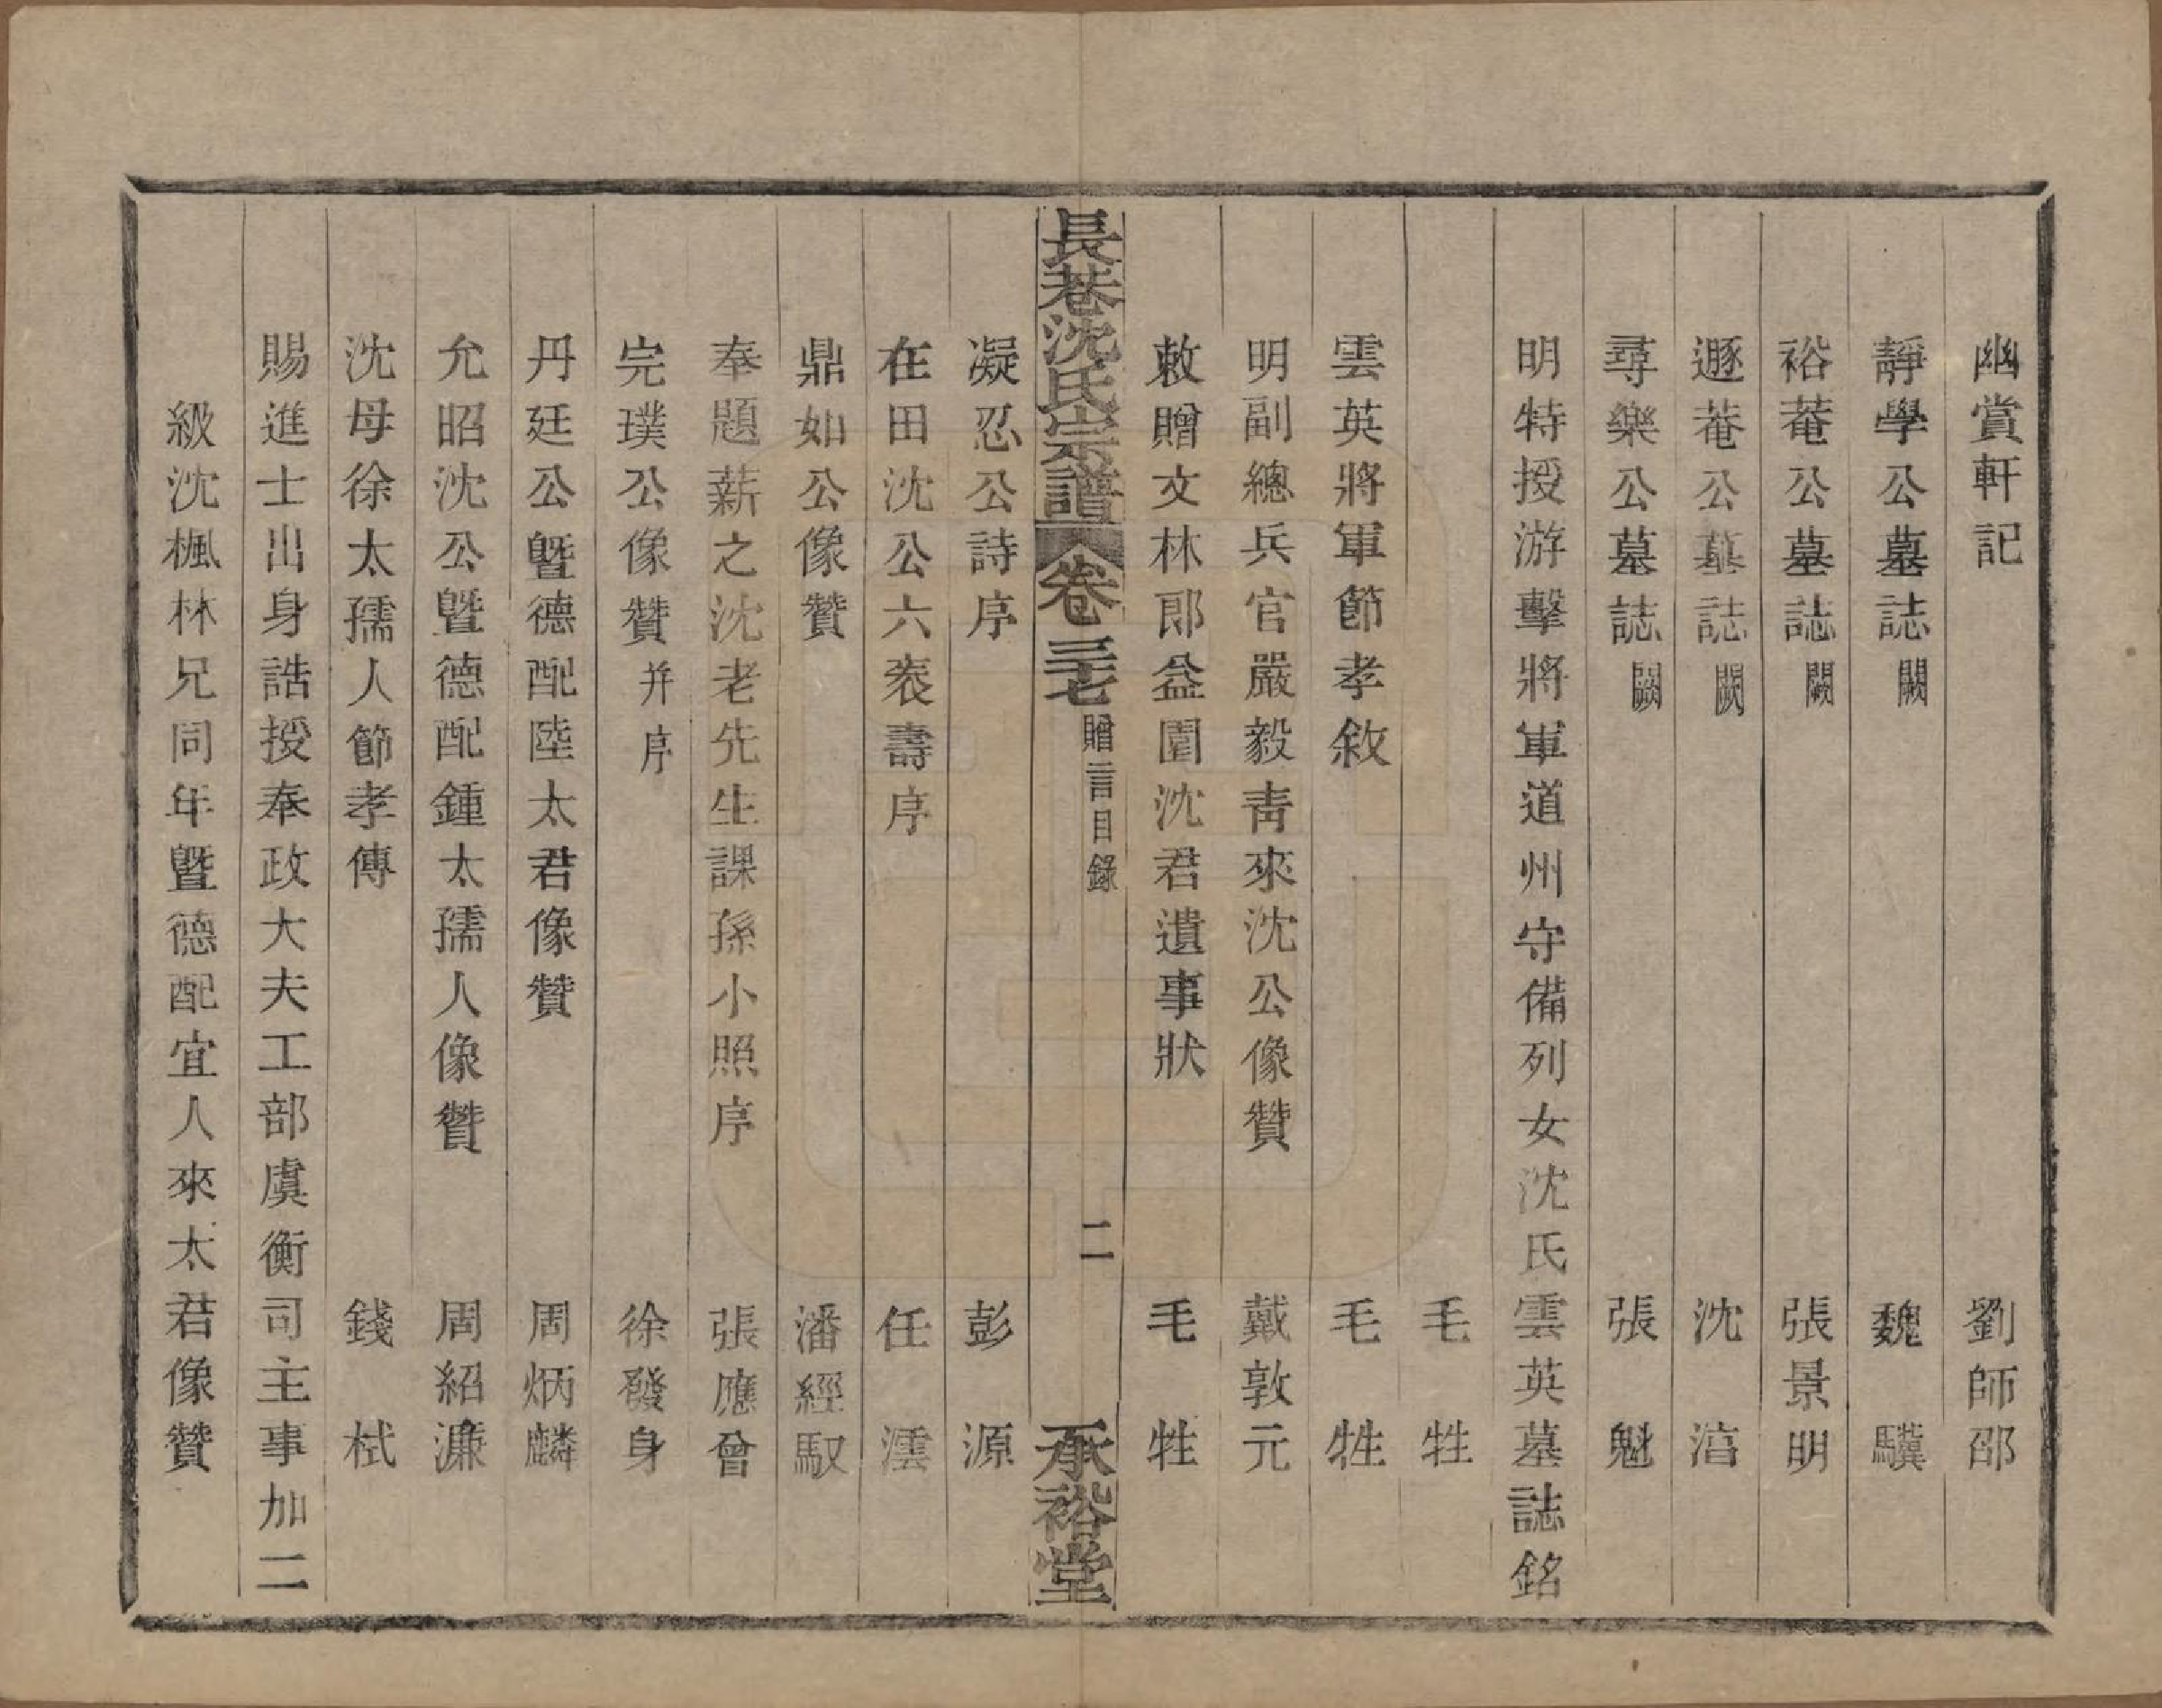 幽賞軒記　劉師邵
靜學公墓誌闕　魏驥
裕菴公墓誌闕　張景明
遯菴公墓誌闕　沈
尋樂公墓誌闕　張魁
明特授游擊將軍道州守備列女沈氏雲英墓誌銘
毛甡
雲英將軍節孝敘　毛甡
明副總兵官嚴毅靑來沈公像贊　戴敦元
敕贈文林郎盆園沈君遺事狀　毛甡
長巷沈氏宗譜　卷三十七　贈言目錄　二　承裕堂
凝忍公詩序　彭源
在田沈公六袠壽序　任澐
鼎如公像贊　潘經馭
奉題薪之沈老先生課孫小照序　張應曾
完璞公像贊并序　徐發身
丹廷公曁德配陸太君像贊　周炳麟
允昭沈公曁德配鍾太孺人像贊　周紹濂
沈母徐太孺人節孝傳　錢栻
賜進士出身誥授奉政大夫工部虞衡司主事加二
級沈楓林兄同年曁德配宜人來太君像贊